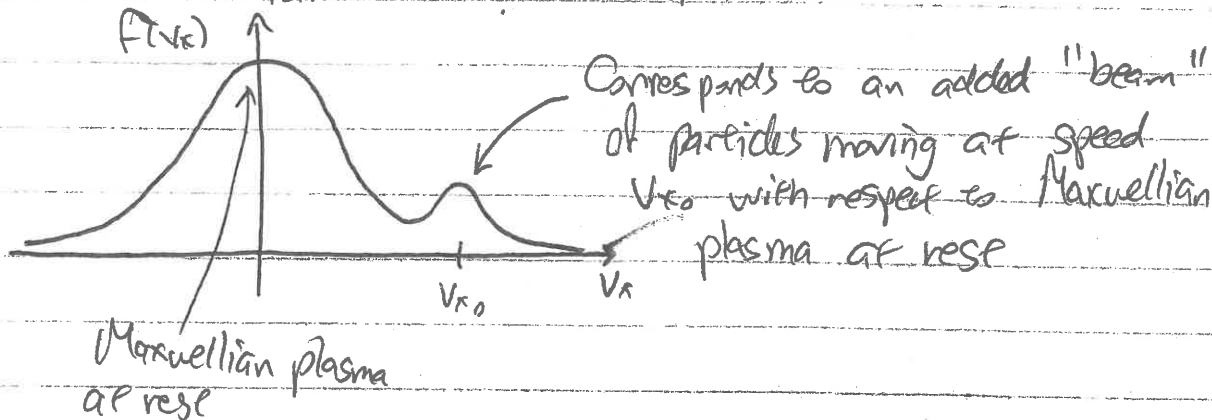 f(vx)
Corresponds to an added "beam"
of particles moving at speed
Vx₀ with respect to Maxwellian
plasma at rest
Vx₀
Vx
Maxwellian plasma
at rest